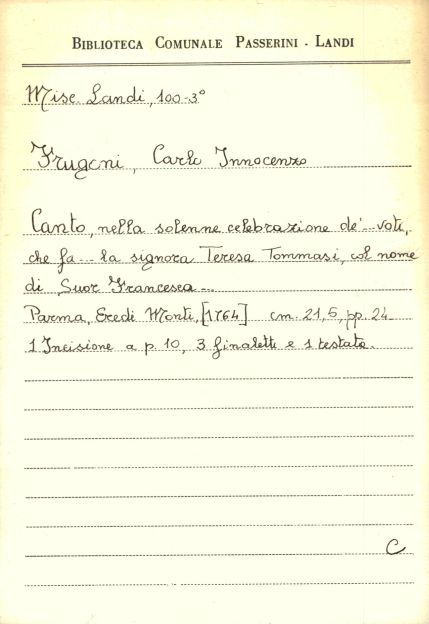 BIBLIOTECA COMUNALE PASSERINI - LANDI
Misc. Landi, 100-3°
Frugoni, Carlo Innocenzo
Canto, nella solenne celebrazione de'... voti,
che fa... la signora Teresa Tommasi, col nome
di Suor Francesca...
Parma, Eredi Monti, [1764] cm. 21,5, pp. 24
1 Incisione a p. 10, 3 finaletti e 1 testata.
C